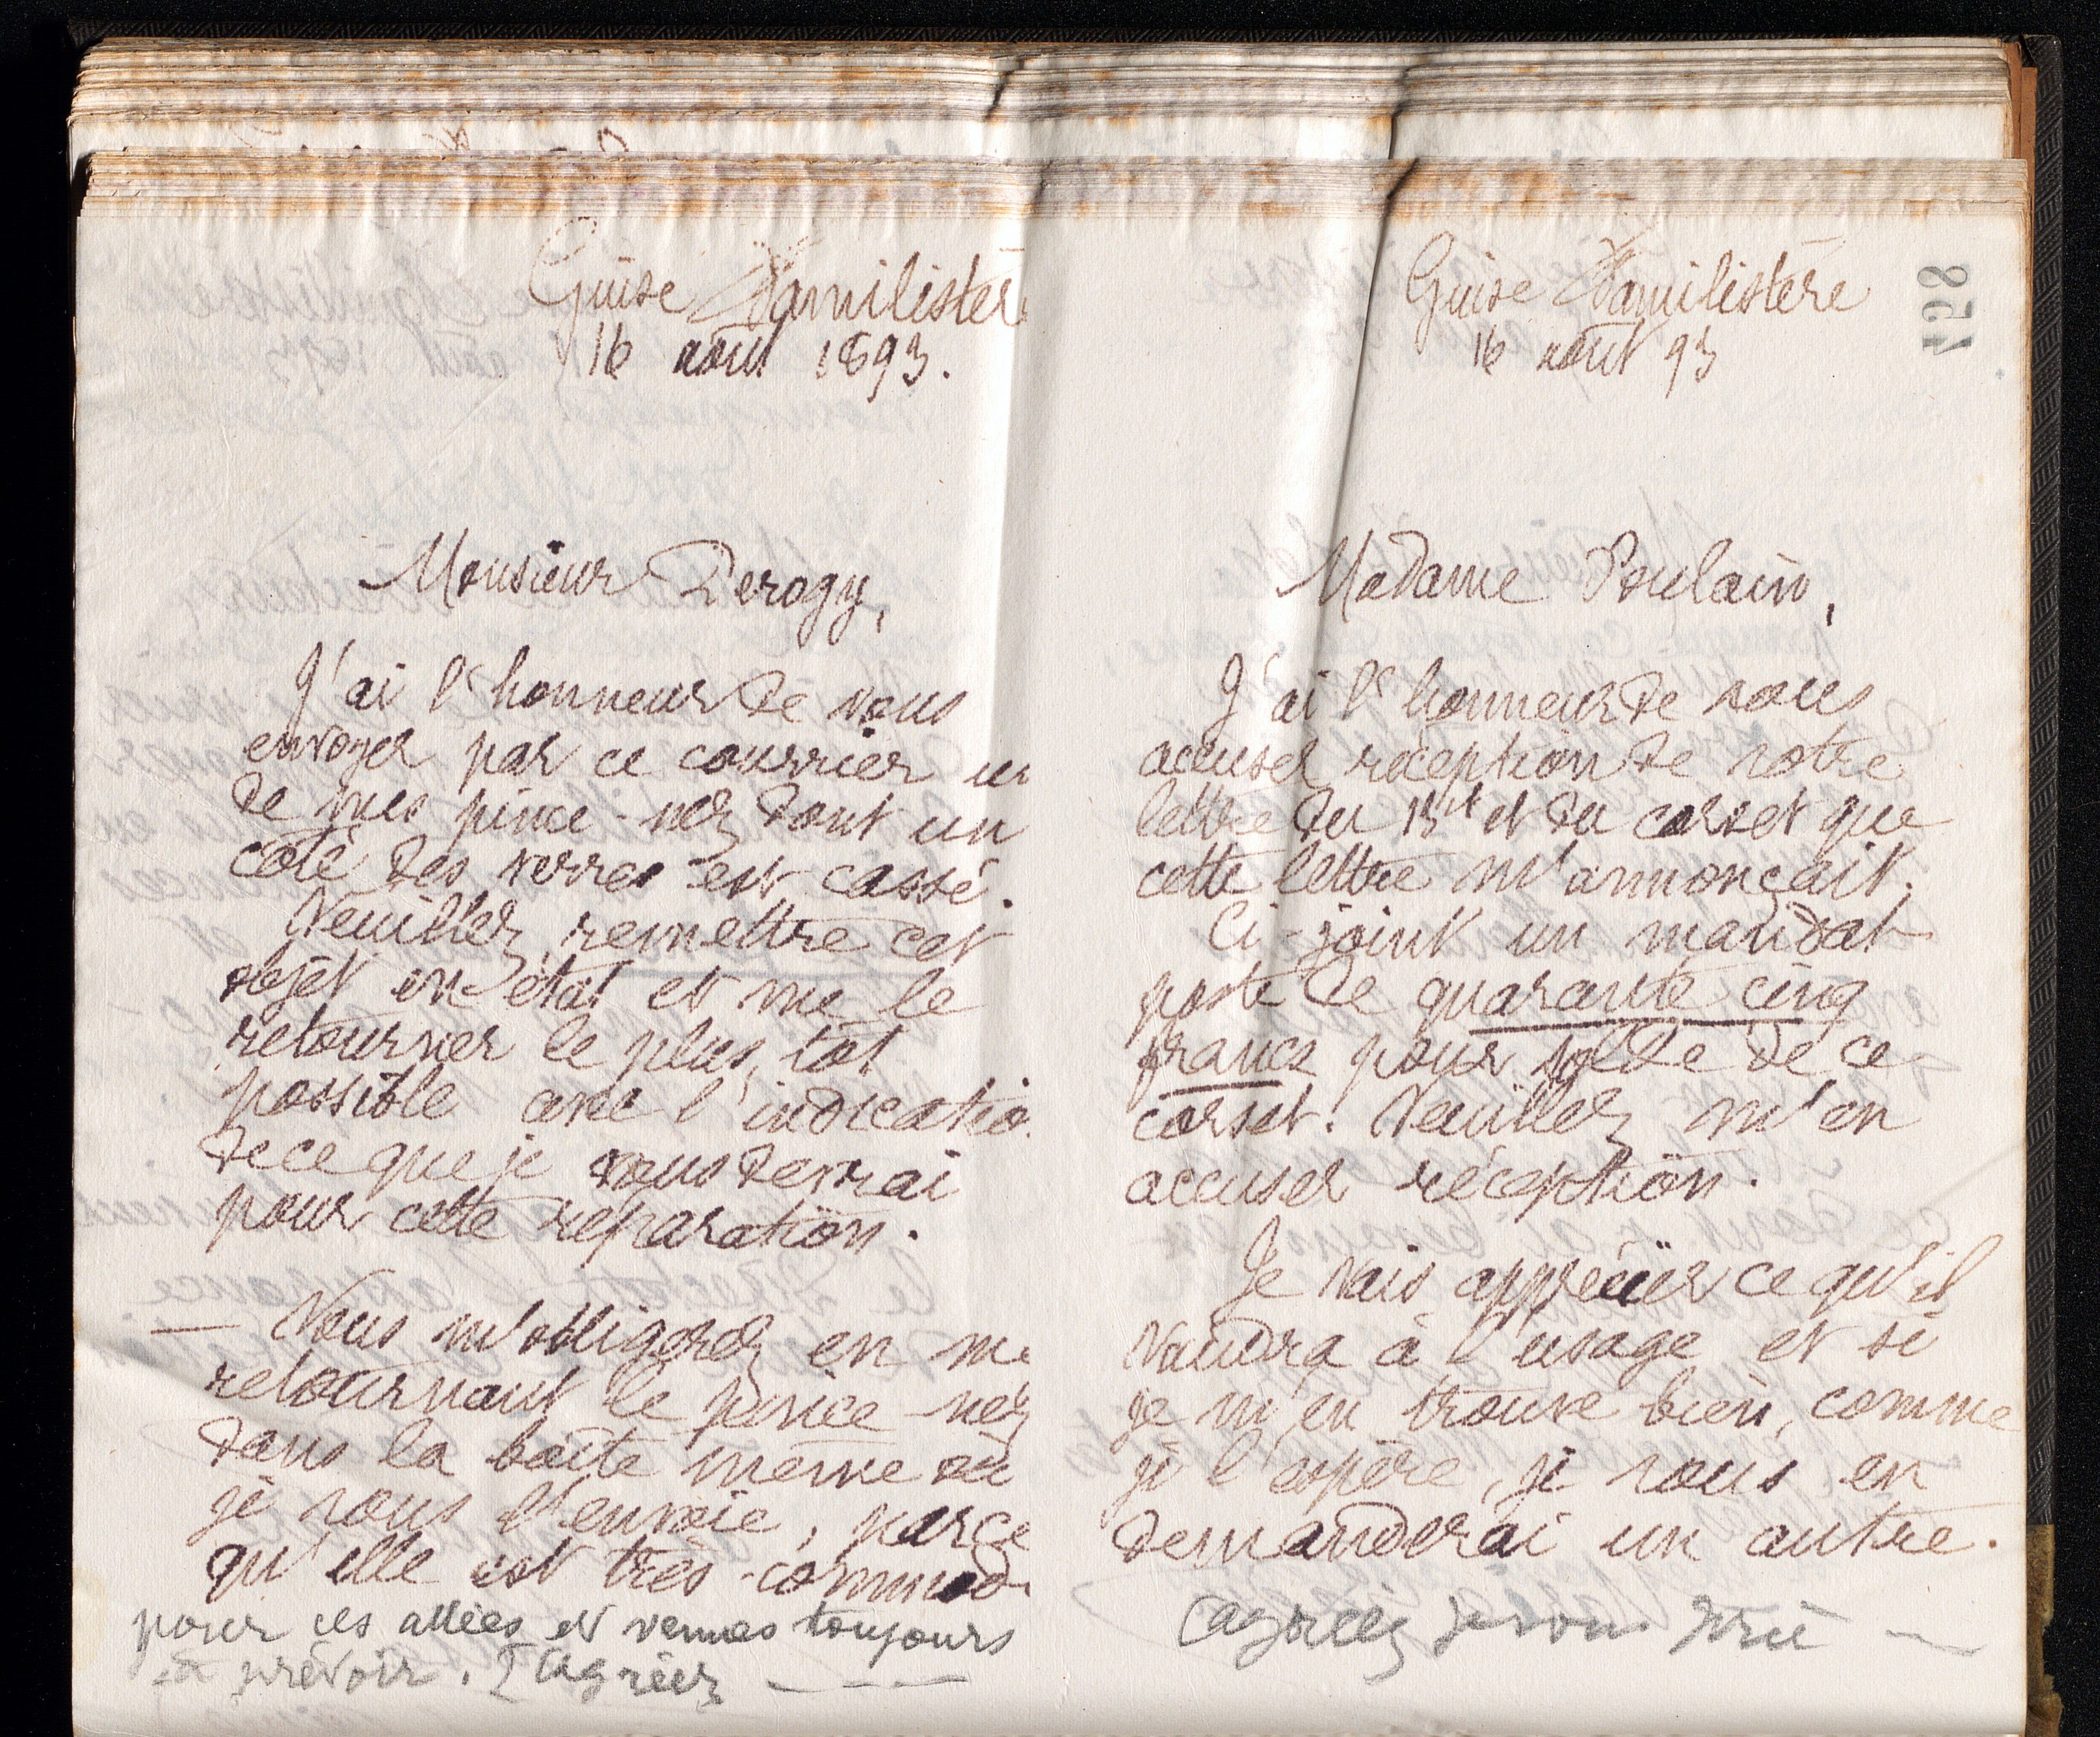 Guise Familistère
16 août 1893.
Monsieur Derogy,
J'ai l'honneur de vous
envoyer par ce courrier un
de mes pince-nez dont un
côté des verres est cassé.
Veuillez remettre cet
objet en état et me le
retourner le plus tôt
possible avec l'indicatio
de ce que je vous devrai
pour cette réparation.
— Vous m'obligerez en me
retournant le pince-nez
dans la boîte même où
je vous l'envoie, parce
qu'elle est très-commod
pour ces allées et venues toujours
à prévoir. Agréez ———
Guise Familistère
16 août 93
428
Madame Poulain,
J'ai l'honneur de vous
accuser réception de votre
lettre du 15 ct et du corset que
cette lettre m'annonçait.
Ci-joint un mandat
poste de quarante cinq
francs pour solde de ce
corset. Veuillez m'en
accuser réception.
Je vais apprécier ce qu'il
vaudra à l'usage et si
je m'en trouve bien, comme
je l'espère, je vous en
demanderai un autre.
(agréez je vous prie —